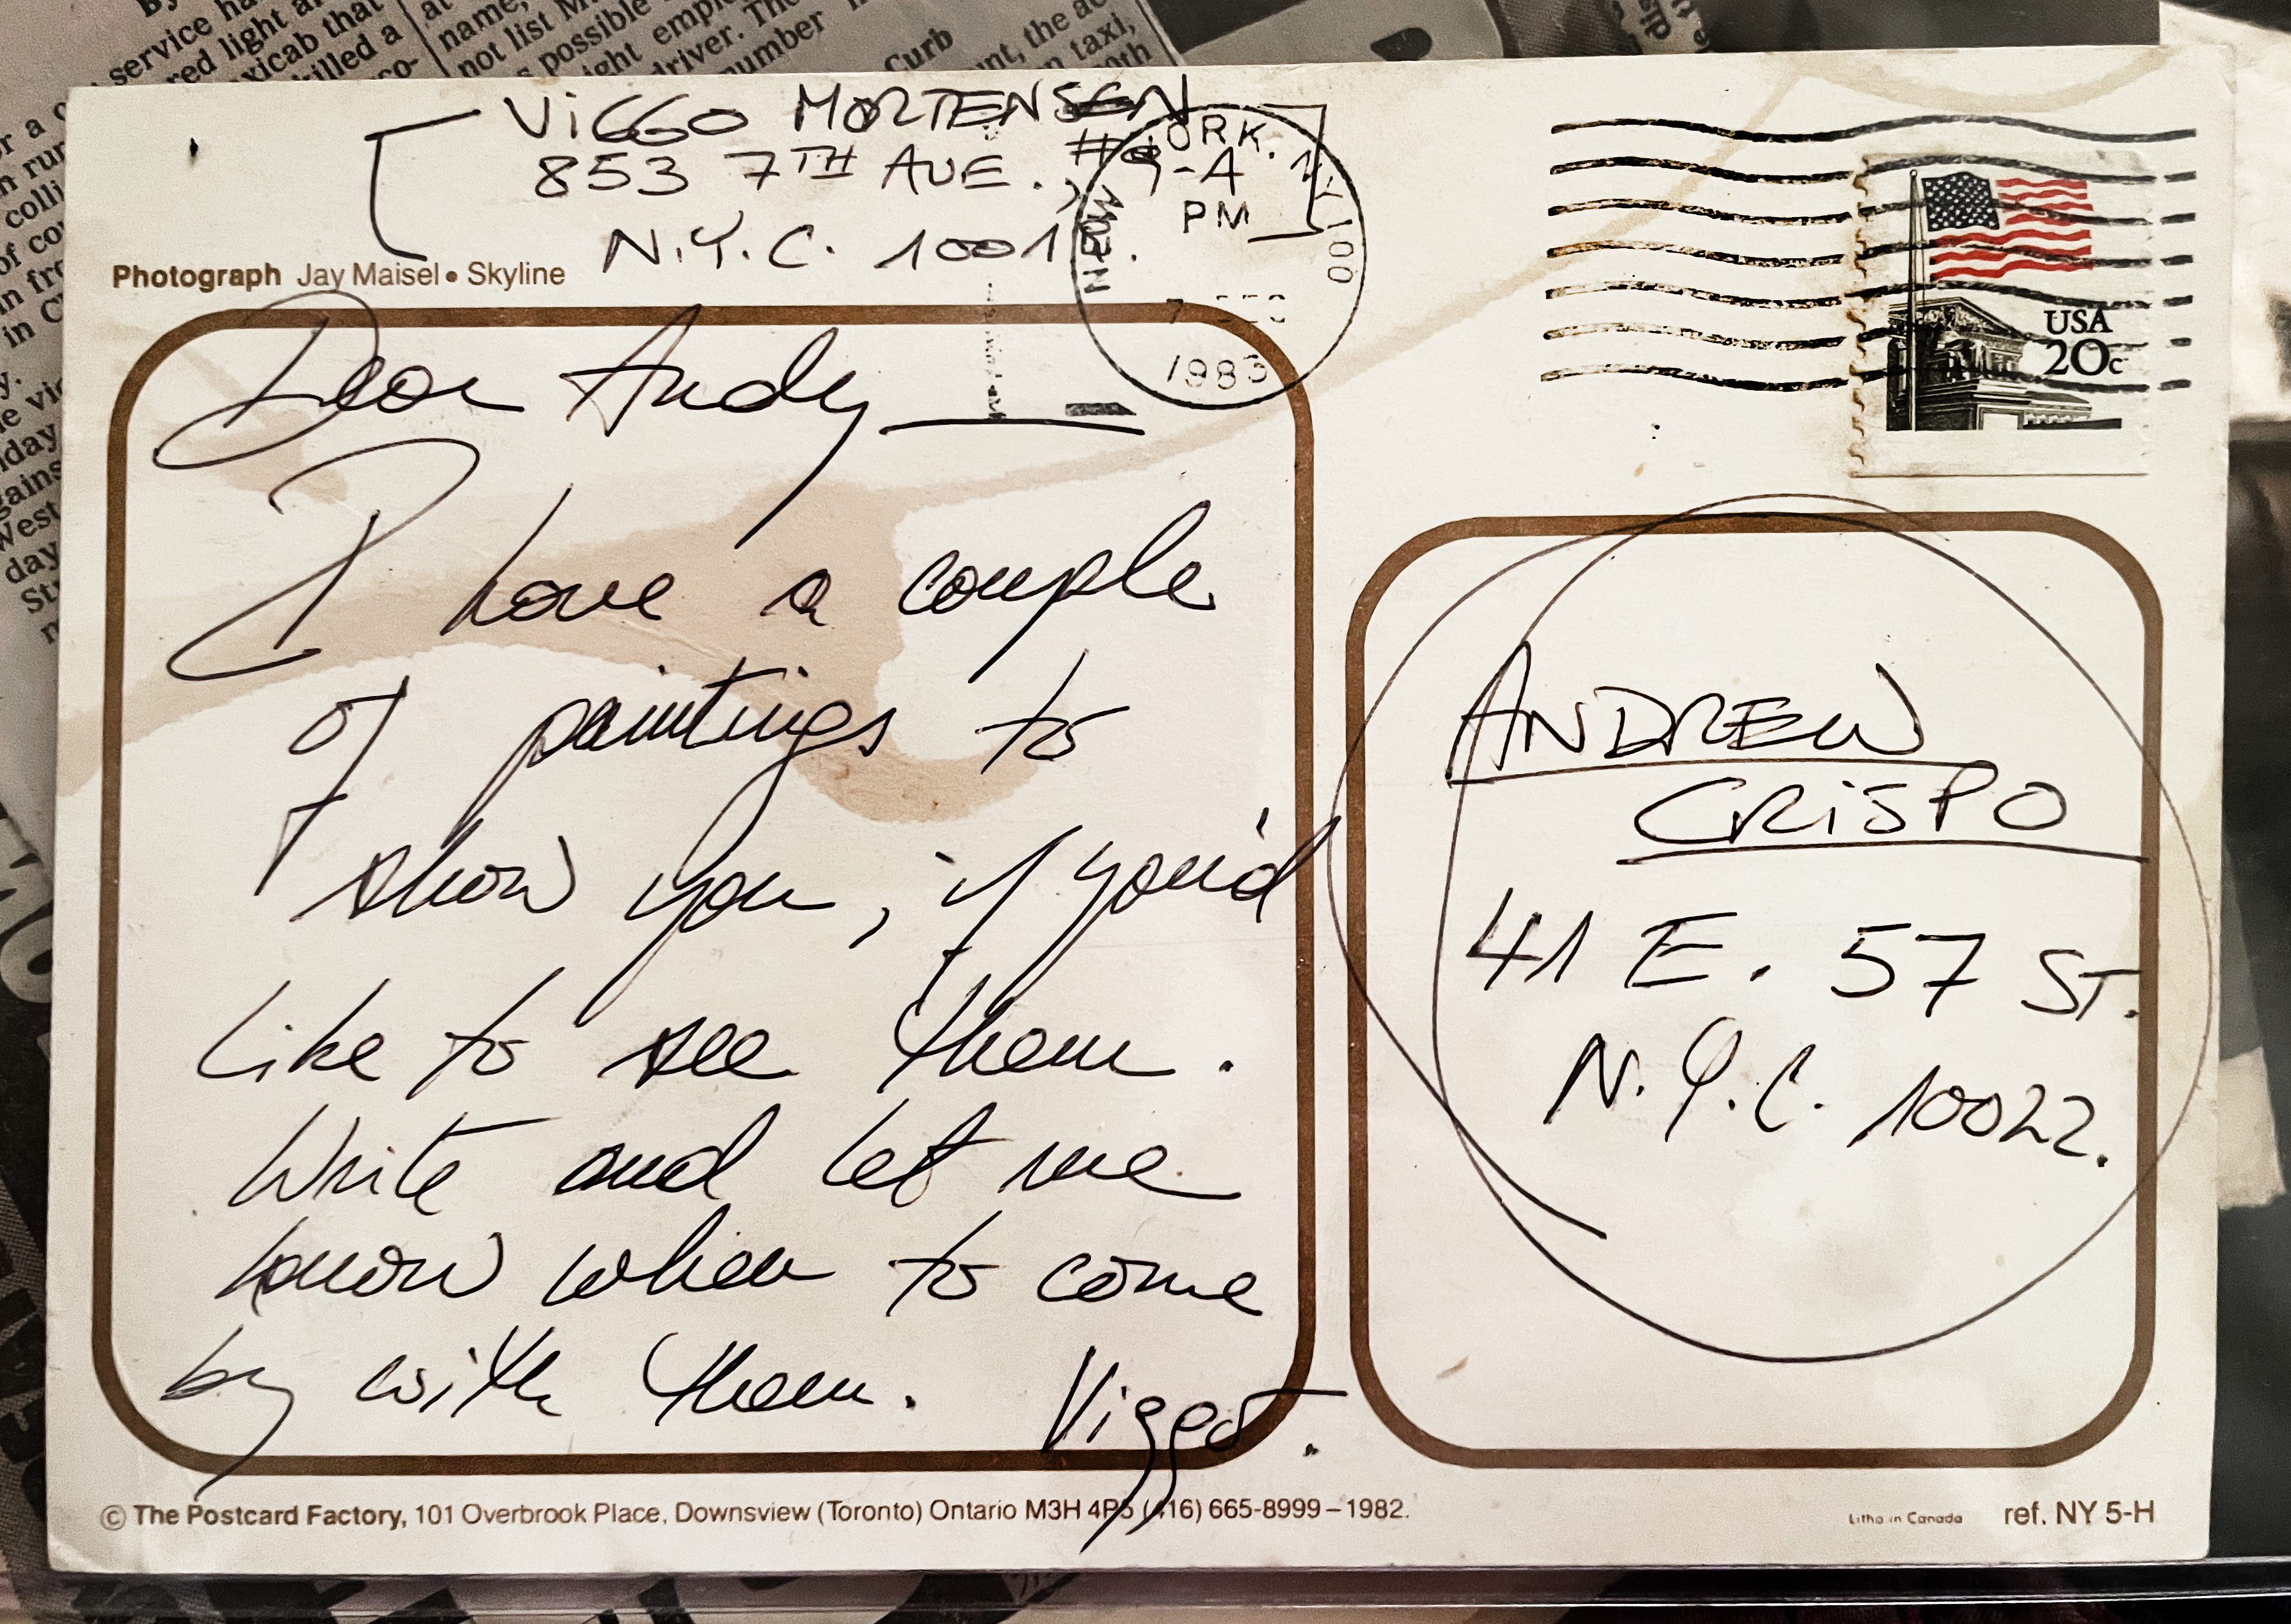 VIGGO MORTENSEN
853 7TH AVE., #9-A
N.Y.C. 1001
NEW YORK, N.Y. 100
PM
7 DEC
1983
USA
20c
Photograph Jay Maisel • Skyline
Dear Andy
I have a couple
of paintings to
show you, if you'd
like to see them.
Write and let me
know when to come
by with them. Viggo.
ANDREW
CRISPO
41 E. 57 ST.
N.Y.C. 10022.
© The Postcard Factory, 101 Overbrook Place, Downsview (Toronto) Ontario M3H 4P5 (416) 665-8999–1982.
Litho in Canada ref. NY 5-H
service
red light
taxicab that
killed a
name,
not list
possible
driver. The
number
Curb